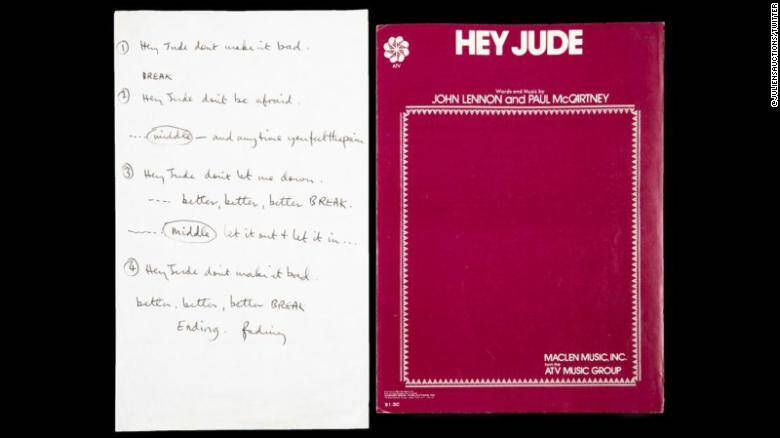 ① Hey Jude don't make it bad.
BREAK
② Hey Jude don't be afraid.
---- middle — and anytime you feel the pain
③ Hey Jude don't let me down.
---- better, better, better BREAK.
middle let it out & let it in ...
④ Hey Jude don't make it bad.
better. better, better BREAK
Ending. fading
ATV
HEY JUDE
Words and Music by
JOHN LENNON and PAUL McCARTNEY
MACLEN MUSIC, INC.
from the
ATV MUSIC GROUP
$1.50
@JULIENSAUCTIONS/TWITTER